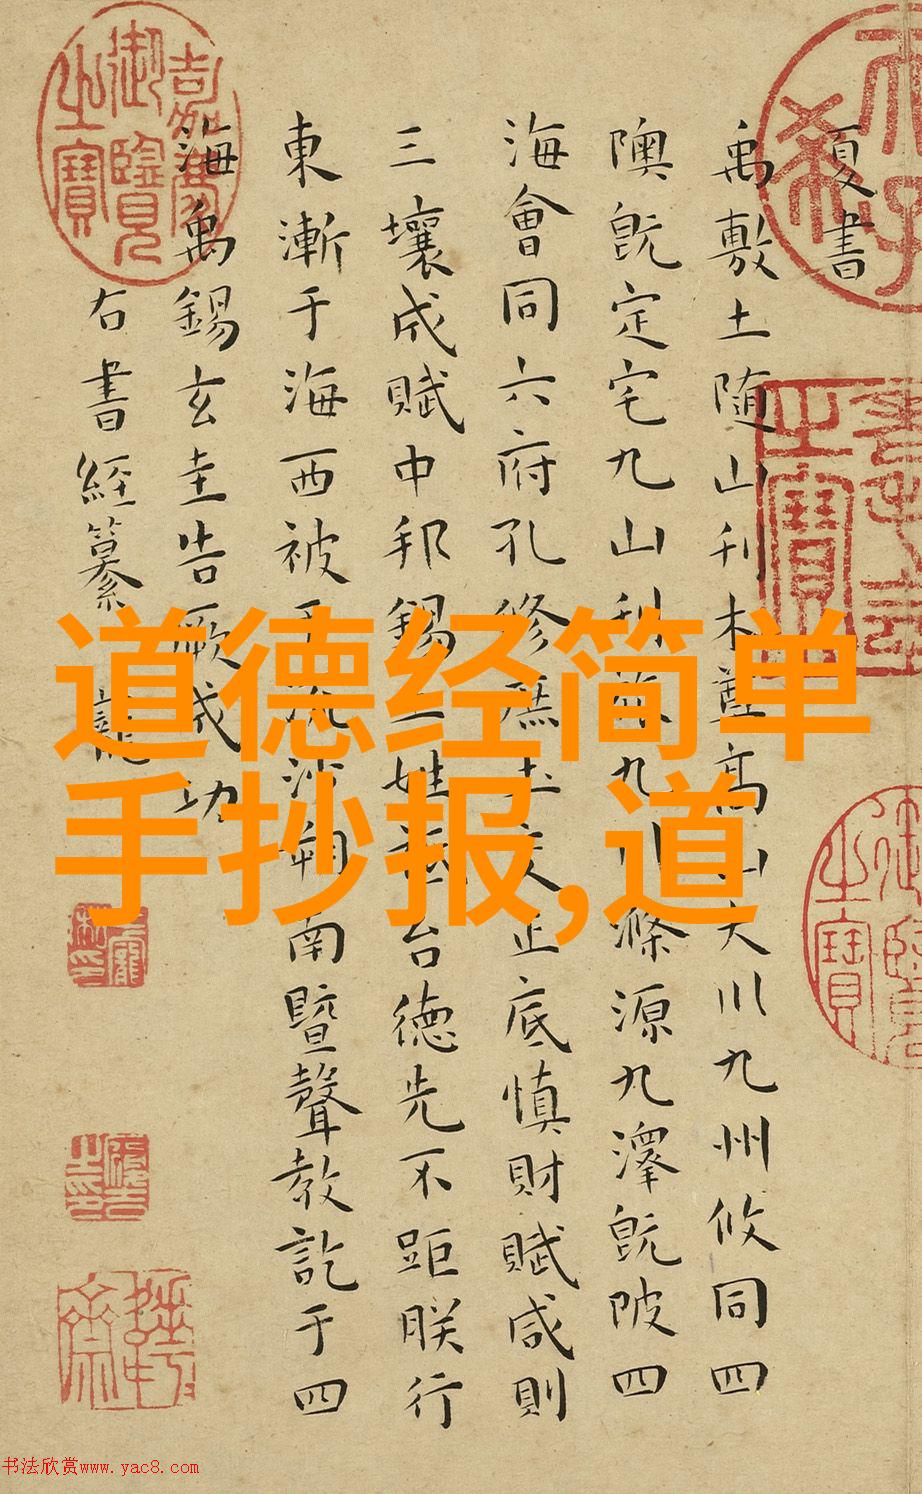 夏書
禹敷土随山刊木奠高山大川九州攸同四
隩既定宅九山刊旅九川滌源九澤既陂四
海會同六府孔修庶土交正底慎財賦咸則
三壤成賦中邦錫土姓祗台德先不距朕行
東漸于海西被于流沙朔南暨聲教訖于四
海禹錫玄圭告厥成功
右書經纂
嘉慶御覽之寶
道德经简单
手抄报,道
书法欣赏www.yac8.com